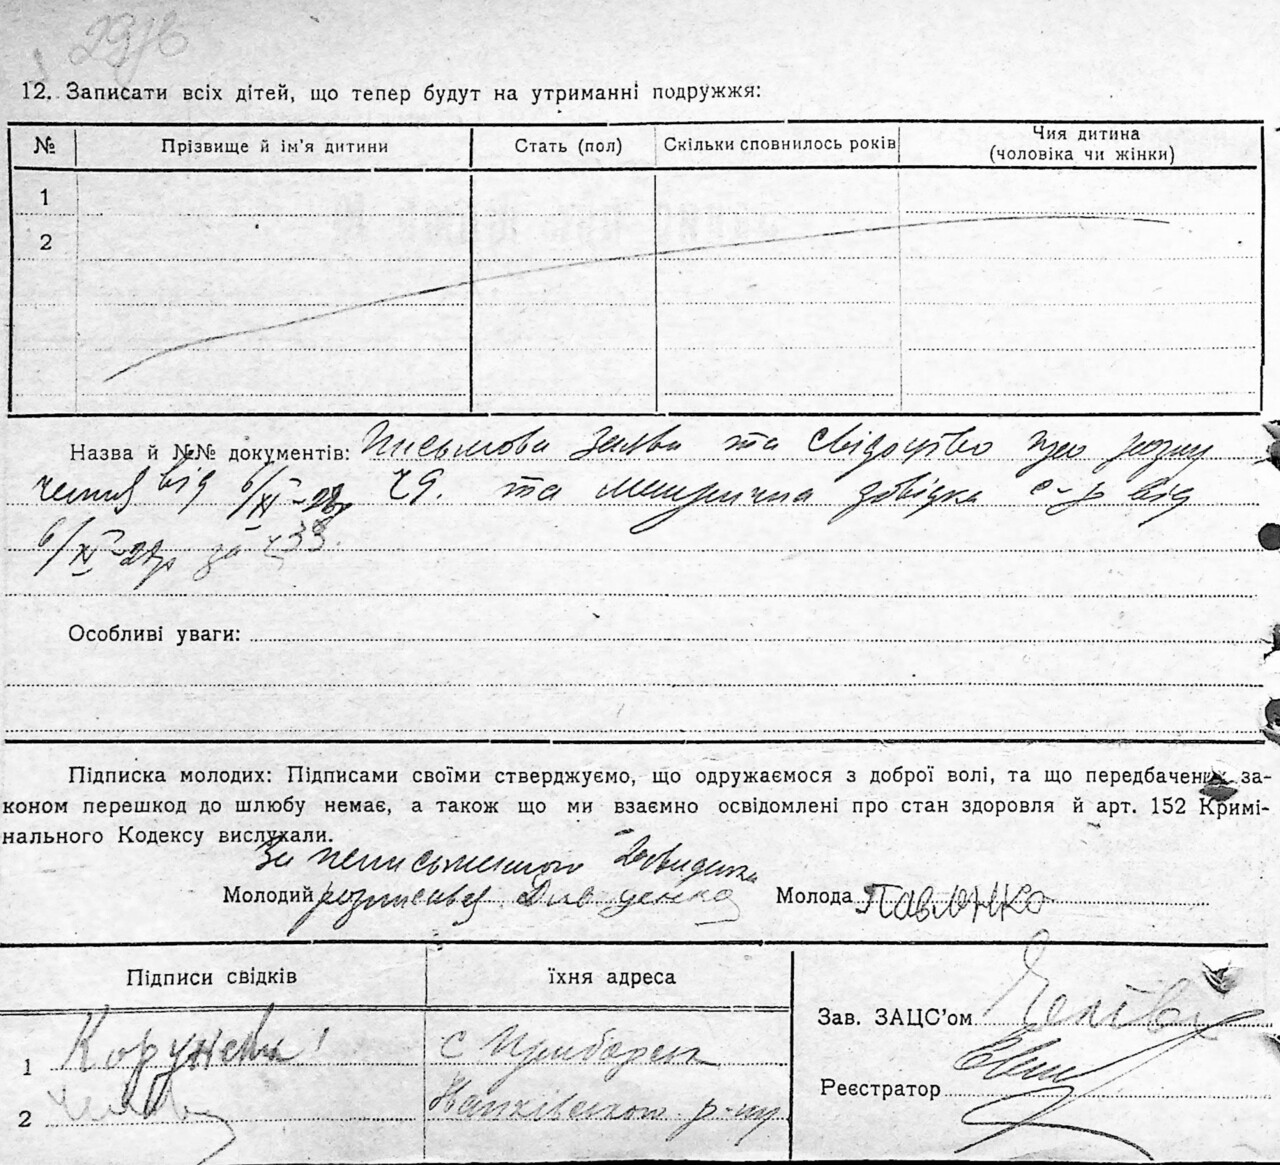 12. Записати всіх дітей, що тепер будут на утриманні подружжя:
№ Прізвище й ім'я дитини Стать (пол) Скільки сповнилось років Чия дитина
(чоловіка чи жінки)
1
2
Назва й №№ документів: Письмова заява та свідоцтво про розлу
чення від 6/XI-28р ч9. та метрична довідка с-р від
6/XI-28р за ч33.
Особливі уваги:
Підписка молодих: Підписами своїми стверджуємо, що одружаємося з доброї волі, та що передбачених за-
коном перешкод до шлюбу немає, а також що ми взаємно освідомлені про стан здоровля й арт. 152 Кримі-
нального Кодексу вислухали.
За неписьменного
Молодий розписався Молода Павленко
Підписи свідків їхня адреса
Зав. ЗАЦС'ом
1 с
Реєстратор
2 р-ну